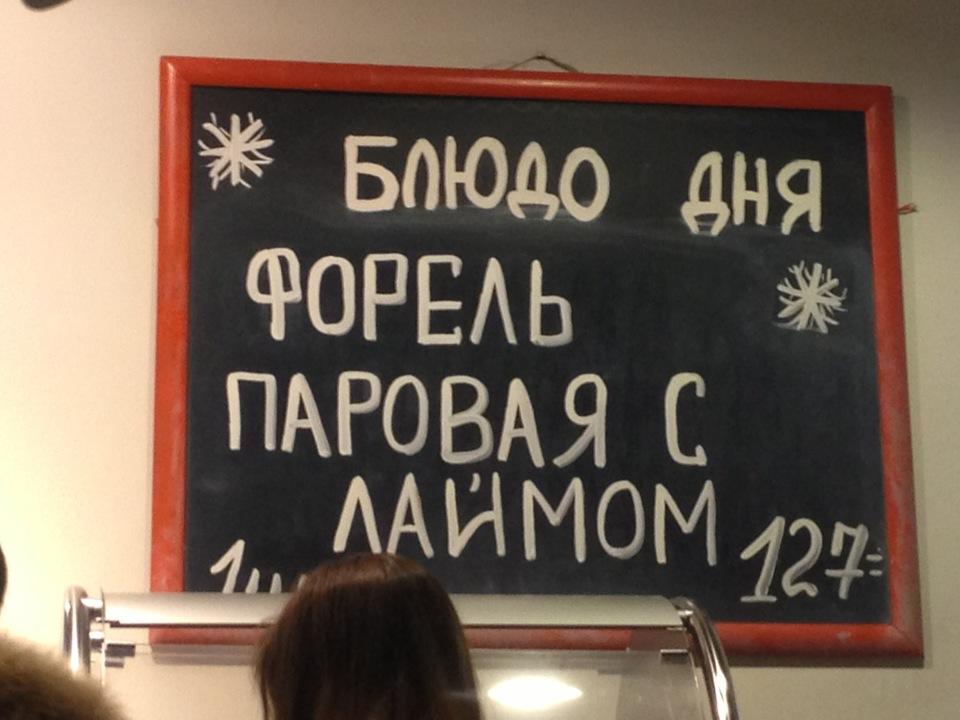 БЛЮДО ДНЯ
ФОРЕЛЬ
ПАРОВАЯ С
ЛАЙМОМ
127=